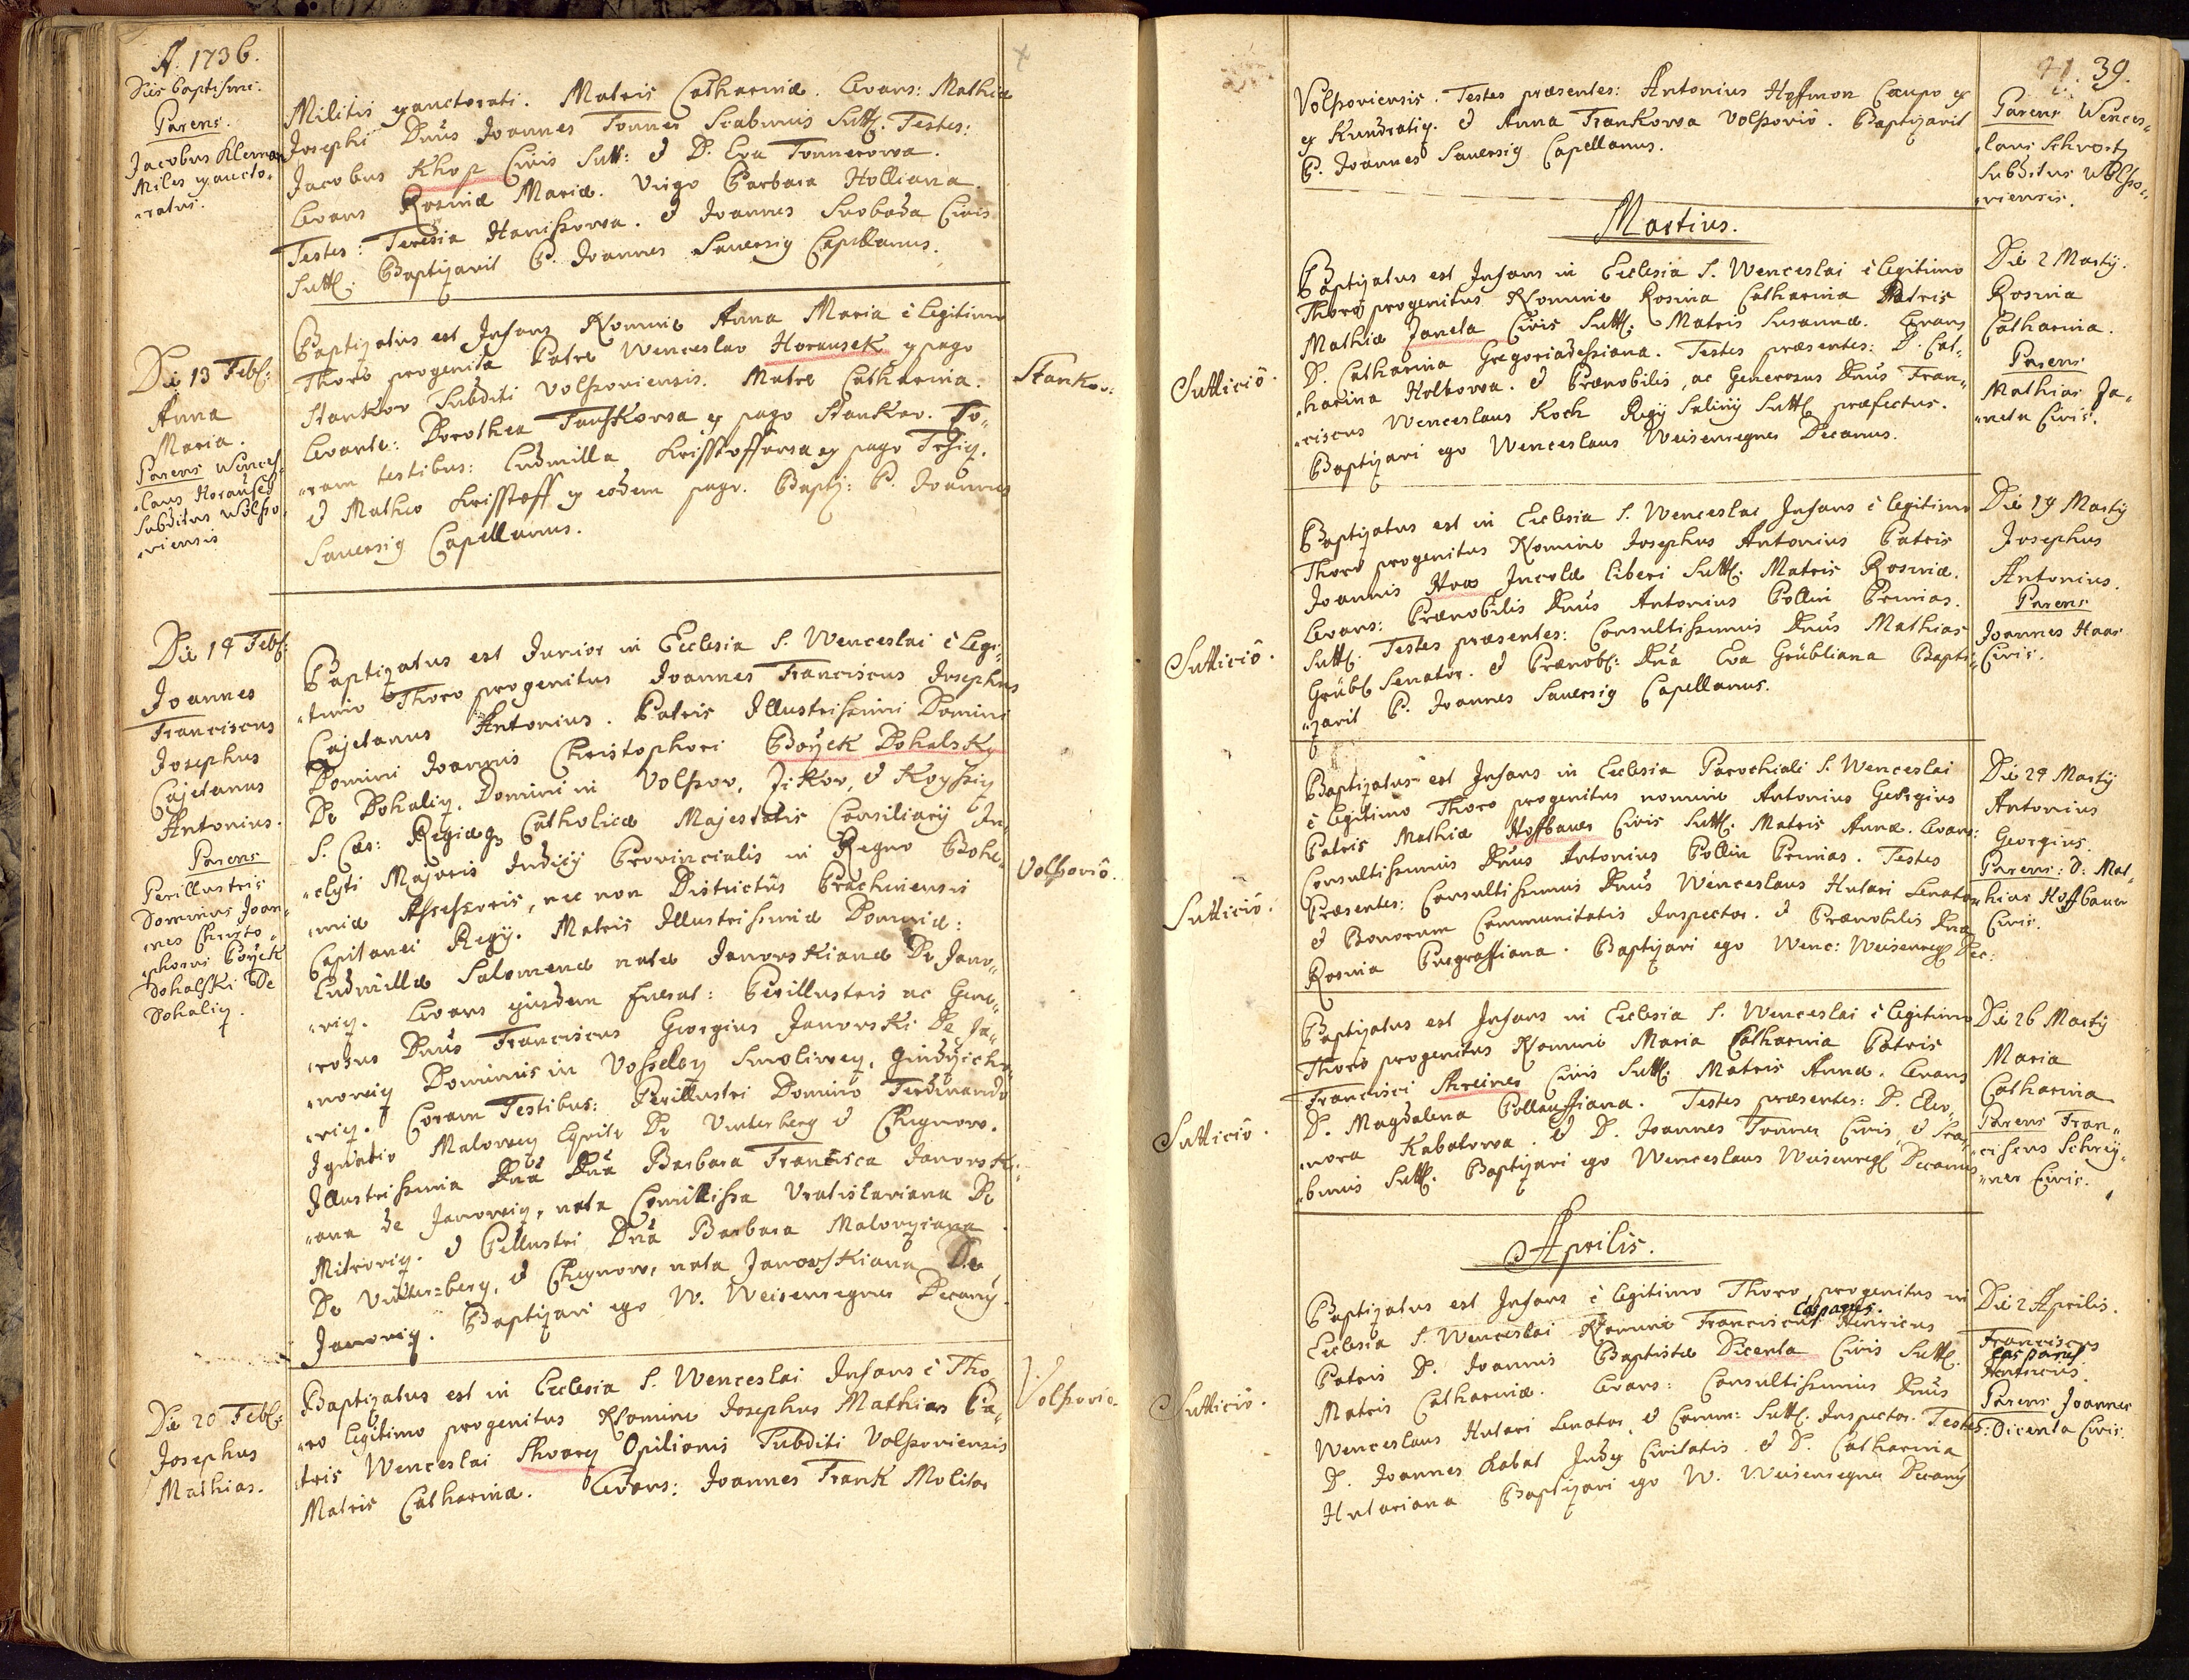 A. 1736.
Dies baptismi.
Parens.
Jacobus Kleman
Miles exaucto-
-ratus.
Militis exauctorati. Matris Catharinæ. Levans: Mathiæ
Josephi Dnus Joannes Tonner Scabinus Sutt. Testes:
Jacobus Khop Civis Sutt: et D. Eva Tonnerowa.
Levans Rosinæ Mariæ. Virgo Barbara Holliana.
Testes: Teresia Hanißowa. et Joannes Swoboda Civis
Sutt. Baptizavit P. Joannes Sauersig Capellanus.
Die 13 Feb:
Anna
Maria.
Parens Wences-
-laus Horausek
Subditus Wolßo-
-viensis
Baptizatus est Infans Nomine Anna Maria è legitimo
Thoro progenita Patre Wenceslao Horausek ex pago
Stankov Subditi Volßoviensis. Matre Catharina.
Levante: Dorothea ex pago Stankov. Co-
-ram testibus: Ludmilla Krisstoffowa ex pago
et Matheo Krisstoff ex eodem pago. Bapti: P. Joannes
Sauersig Capellanus.
Stankov:
Die 14 Feb:
Joannes
Franciscus
Josephus
Cajetanus
Antonius.
Parens
Perillustris
Dominus Joan-
-nes Christo-
-phorus Boýek
Dohalski De
Dohaliz.
Baptizatus est Junior in Ecclesia S. Wenceslai è legi-
-timo Thoro progenitus Joannes Franciscus Josephus
Cajetanus Antonius. Patris Illustrissimi Domini
Domini Joannis Christophori Boýek Dohalsky
De Dohaliz. Domini in Volßov, Žikov, et
S. Cæs: Regiæq Catholicæ Majestatis Consiliarij In-
-clyti Majoris Judicij Provincialis in Regno Bohe-
-miæ Assessoris, nec non Districtûs Prachinensis
Capitanei Regij. Matris Illustrissimæ Dominæ:
Ludmillæ Salomenæ natæ Janovskianæ De Jano-
-viz. Levans ejusdem fuerat: Perillustris ac Gene-
-rosus Dnus Franciscus Georgius Janovski De Ja-
-noviz Dominus in Smoliwez,
-viz. Coram Testibus: Perillustri Domino Ferdinando
Ignatio Malowez Equite De Vinterberg et Cheynow.
Illustrissima Dna Dna Barbara Francisca Janovski-
-ana de Janowiz, nata Comitissa Vratislaviana De
Mitroviz. et Pillustri Dna Barbara Maloveziana
De Vinter=berg, et Cheynow, nata Janowskiana De
Janoviz. Baptizavi ego W. Weisenregner Decanus.
Volßoviô.
Die 20 Feb:
Josephus
Mathias.
Baptizatus est in Ecclesia S. Wenceslai Infans è Tho-
-ro legitimo progenitus Nomine Josephus Mathias Pa-
-tris Wenceslai Opilionis Subditi Volßoviensis
Matris Catharinæ. Levans: Joannes Frank Molitor
Volßoviô.
39.
Volßoviensis. Testes præsentes: Antonius Hoffmon Caupo ex
ex Kundratiz. et Anna Frankowa Volßoviô. Baptizavit
P. Joannes Sauersig Capellanus.
Parens Wences-
-laus
Subditus Wolßo-
-viensis.
Martius.
Sutticiô.
Baptizatus est Infans in Ecclesia S. Wenceslai è legitimo
Thoro progenitus Nomine Rosina Catharina Patris
Mathiæ Janeta Civis Sutt. Matris Susannæ. Levans
D. Catharina Gregoriadesiana. Testes præsentes: D. Cat-
-harina Holkowa. et Prænobilis, ac Generosus Dnus Fran-
-ciscus Wenceslaus Koch Regij Salinij Sutt. præfectus.
Baptizavi ego Wenceslaus Weisenregner Decanus.
Die 2 Martij.
Rosina
Catharina.
Parens
Mathias Ja-
-neta Civis.
Sutticiô.
Baptizatus est in Ecclesia S. Wenceslai Infans è legitimo
Thoro progenitus Nomine Josephus Antonius Patris
Joannis Haas Incolæ liberi Sutt. Matris Rosinæ.
Levans: Prænobilis Dnus Antonius Pollin Primas.
Sutt. Testes præsentes: Consultissimus Dnus Mathias
Grübl Senator. et Prænob: Dna Eva Grübliana Bapti-
-zavit P. Joannes Sauersig Capellanus.
Die 19 Martij
Josephus
Antonius.
Parens
Joannes Haas
Civis.
Sutticiô.
Baptizatus est Infans in Ecclesia Parochiali S. Wenceslai
è legitimo Thoro progenitus nomine Antonius Georgius
Patris Mathiæ Hoffbauer Civis Sutt. Matris Annæ. Levans:
Consultissimus Dnus Antonius Pollin Primas. Testes
Præsentes: Consultissimus Dnus Wenceslaus Hulari Senator
et Bonorum Communitatis Inspector. et Prænobilis Dna
Rosina Burgrassiana. Baptizavi ego Wenc: Weisenreg: Dec:
Die 24 Martij
Antonius
Georgius.
Parens: D: Mat-
-hias Hoffbauer
Civis.
Sutticiô.
Baptizatus est Infans in Ecclesia S. Wenceslai è legitimo
Thoro progenitus Nomine Maria Catharina Patris
Francisci Shreiner Civis Sutt. Matris Annæ. Levans
D. Magdalena Pollauffiana. Testes præsentes: D. Eleo-
-nora Kabatowa. et D. Joannes Tonner Civis, et Sca-
-binus Sutt. Baptizavi ego Wenceslaus Weisenreg: Decanus
Die 26 Martij
Maria
Catharina
Parens Fran-
-ciscus Schrey-
-ner Civis.
Aprilis.
Sutticiô.
Baptizatus est Infans è legitimo Thoro, progenitus in
Casparus.
Ecclesia S. Wenceslai Nomine Franciscus Henricus
Patris D. Joannis Baptistæ Dicenta Civis Sutt.
Matris Catharinæ. Levans: Consultissimus Dnus
Wenceslaus Hulari Senator, et Comm: Sutt. Inspector. Testes:
D. Joannes Kabat Judex Civitatis. et D. Catharina
Hulariana Baptizavi ego W. Weisenregner Decanus
Die 2 Aprilis.
Franciscus
Casparus
Henricus.
Parens Joannes
Dicenta Civis.